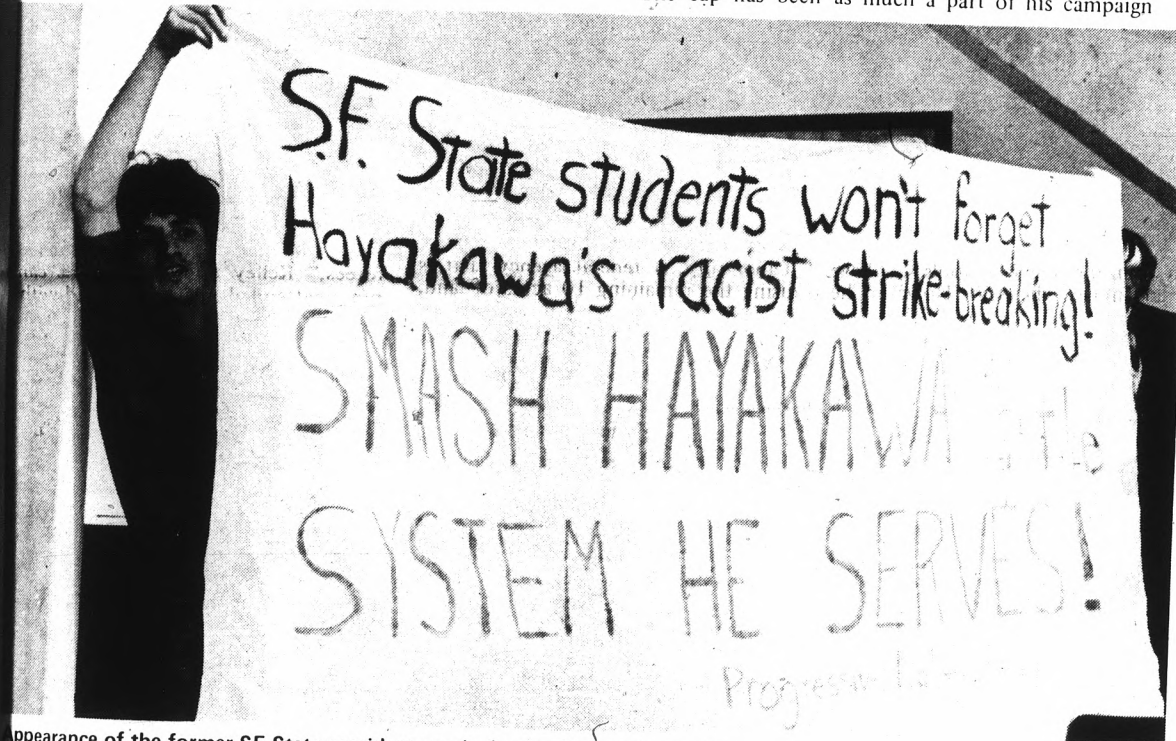 cap has been as much a part of his campaign
S.F. State students won't forget
Hayakawa's racist strike-breaking!
SMASH HAYAKAWA the
SYSTEM HE SERVES!
Progressive
Appearance of the former SF State